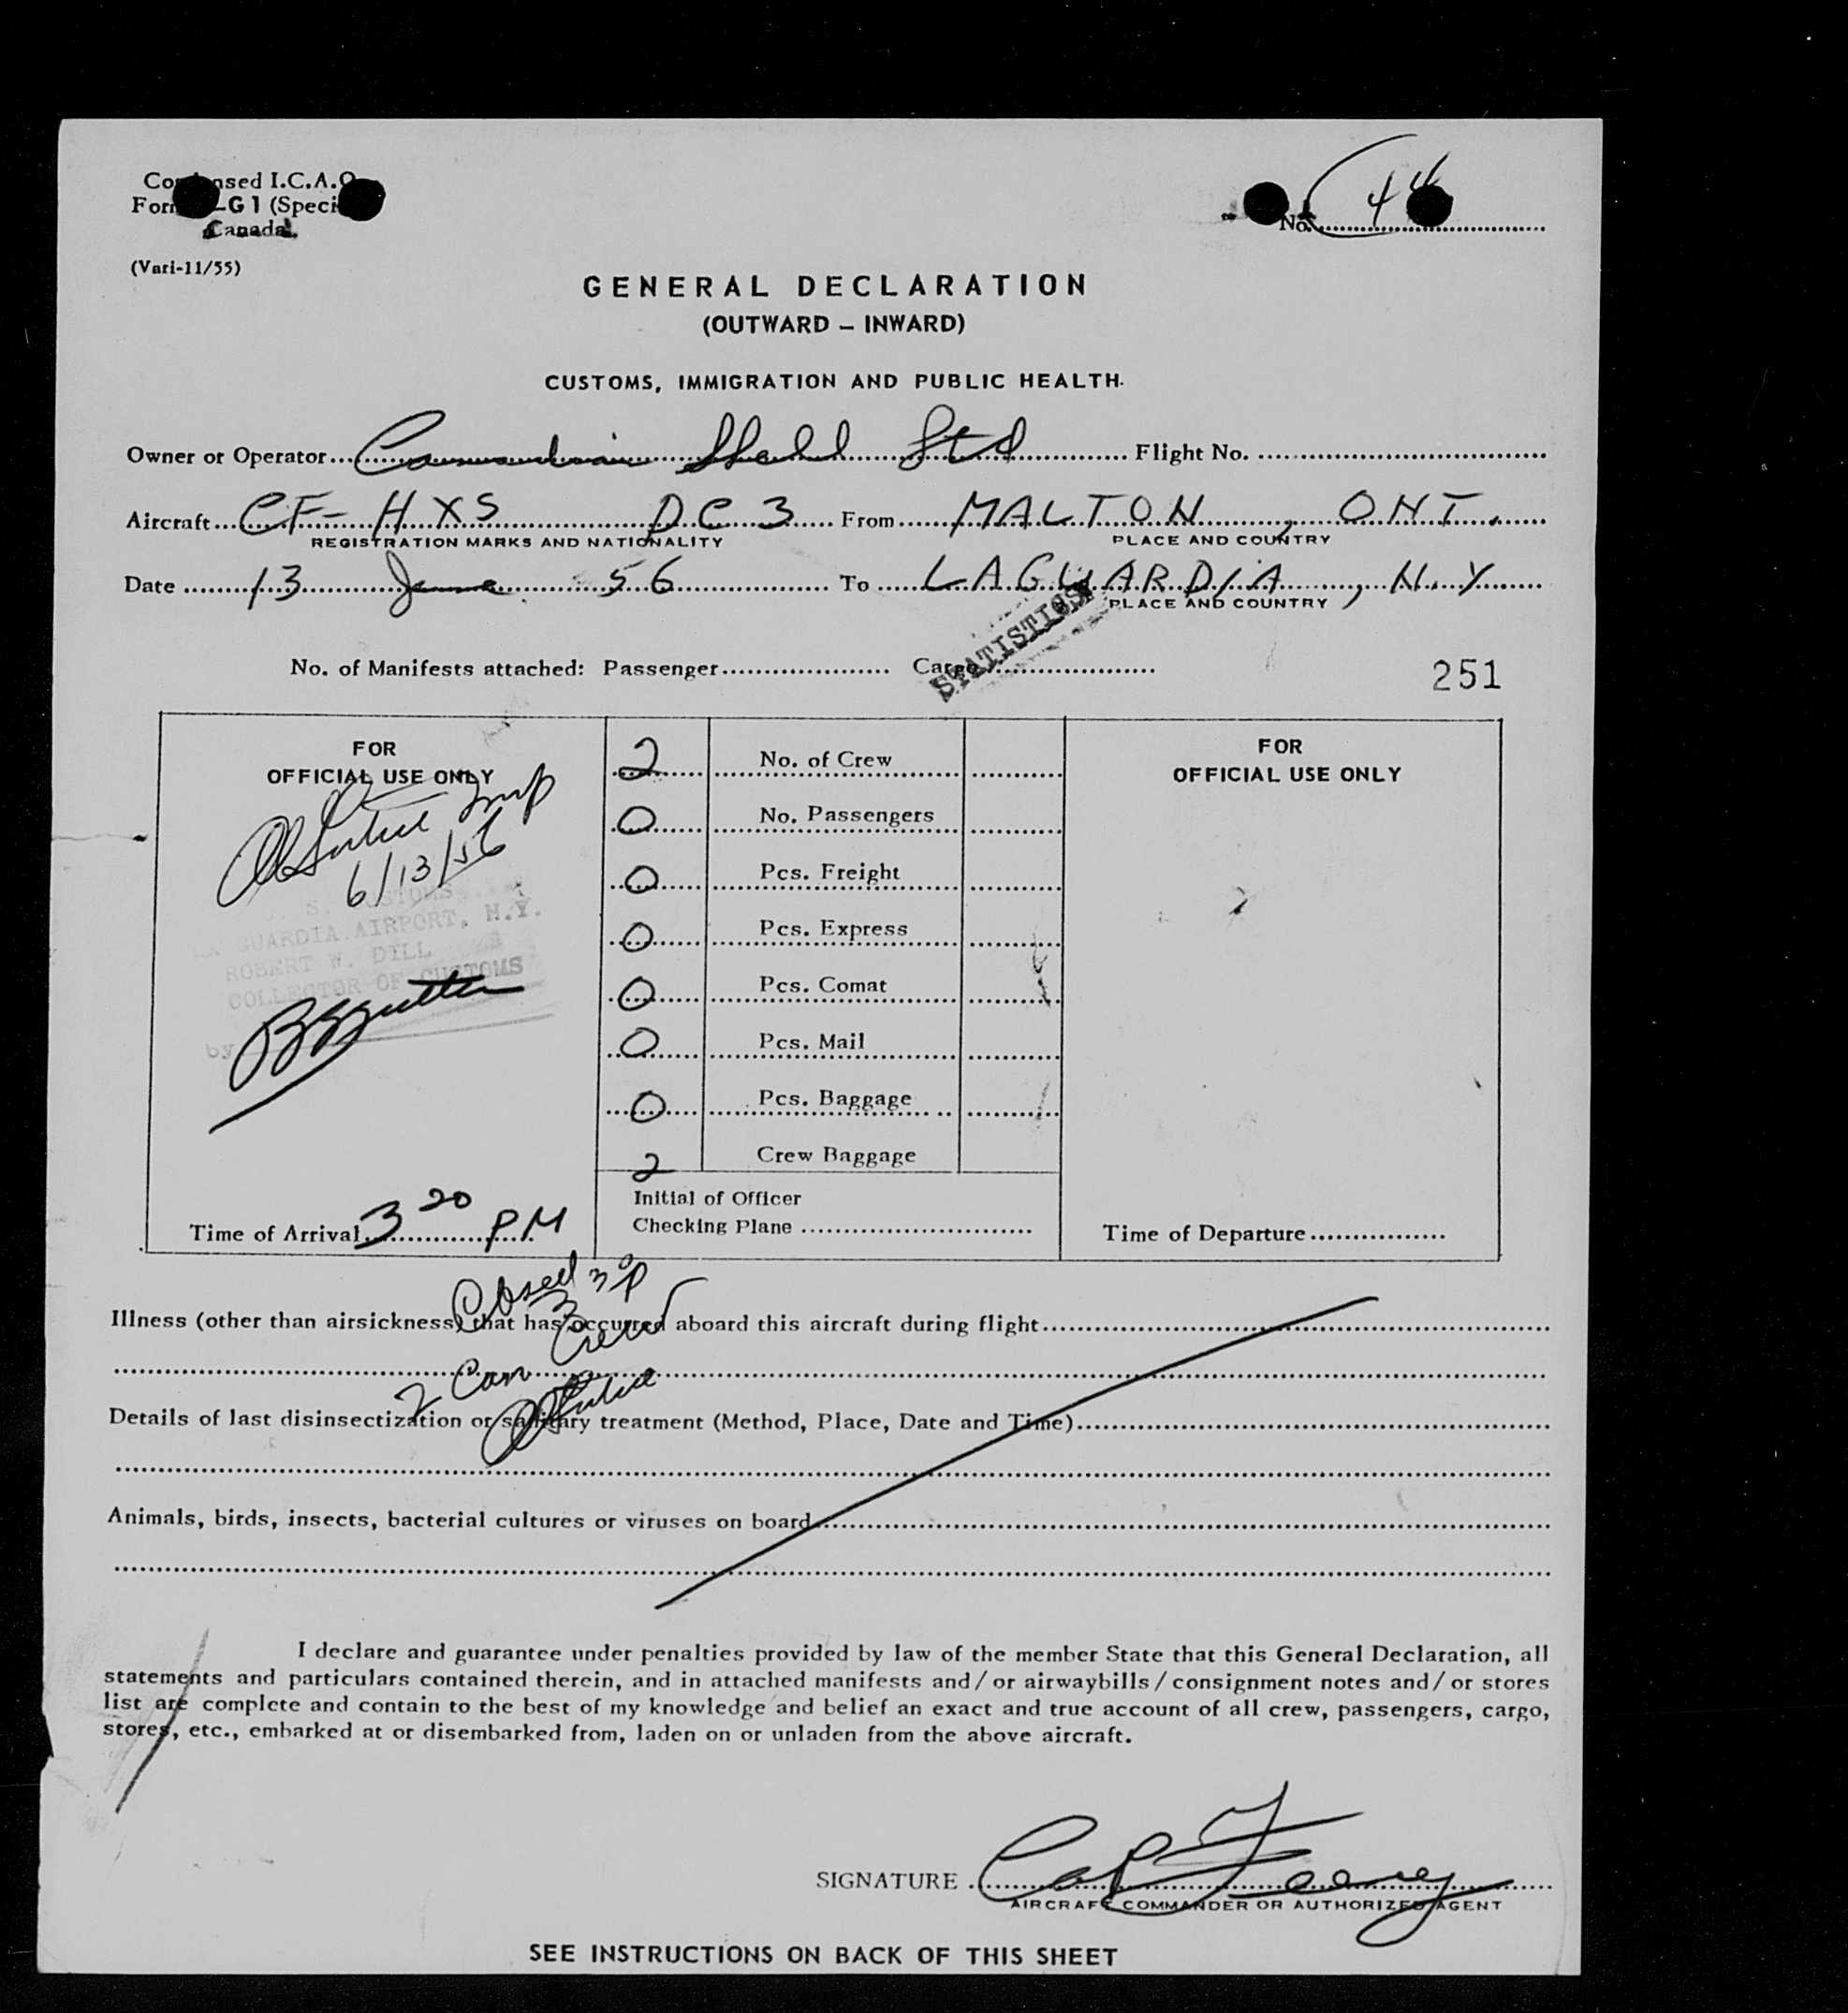 Condensed I.C.A.O.
Form -G 1 (Special
Canada)
No. 44
(Vari-11/55)
GENERAL DECLARATION
(OUTWARD – INWARD)
CUSTOMS, IMMIGRATION AND PUBLIC HEALTH.
Owner or Operator Canadian Shell Ltd Flight No.
Aircraft CF-HXS DC 3 From MALTON, ONT.
REGISTRATION MARKS AND NATIONALITY PLACE AND COUNTRY
Date 13 June 56 To LAGUARDIA, N.Y
PLACE AND COUNTRY
STATISTICS
No. of Manifests attached: Passenger Cargo
251
FOR
OFFICIAL USE ONLY
6/13/56
U. S. CUSTOMS
LA GUARDIA AIRPORT, N.Y.
ROBERT W. DILL
COLLECTOR OF CUSTOMS
by
Time of Arrival 3 20 PM
2 No. of Crew
0 No. Passengers
0 Pcs. Freight
0 Pcs. Express
0 Pcs. Comat
0 Pcs. Mail
0 Pcs. Baggage
2 Crew Baggage
Initial of Officer
Checking Plane
FOR
OFFICIAL USE ONLY
Time of Departure
Illness (other than airsickness) that has occurred aboard this aircraft during flight
2 Can Crew
Details of last disinsectization or sanitary treatment (Method, Place, Date and Time)
Animals, birds, insects, bacterial cultures or viruses on board
I declare and guarantee under penalties provided by law of the member State that this General Declaration, all
statements and particulars contained therein, and in attached manifests and/or airwaybills/consignment notes and/or stores
list are complete and contain to the best of my knowledge and belief an exact and true account of all crew, passengers, cargo,
stores, etc., embarked at or disembarked from, laden on or unladen from the above aircraft.
SIGNATURE Feeney
AIRCRAFT COMMANDER OR AUTHORIZED AGENT
SEE INSTRUCTIONS ON BACK OF THIS SHEET